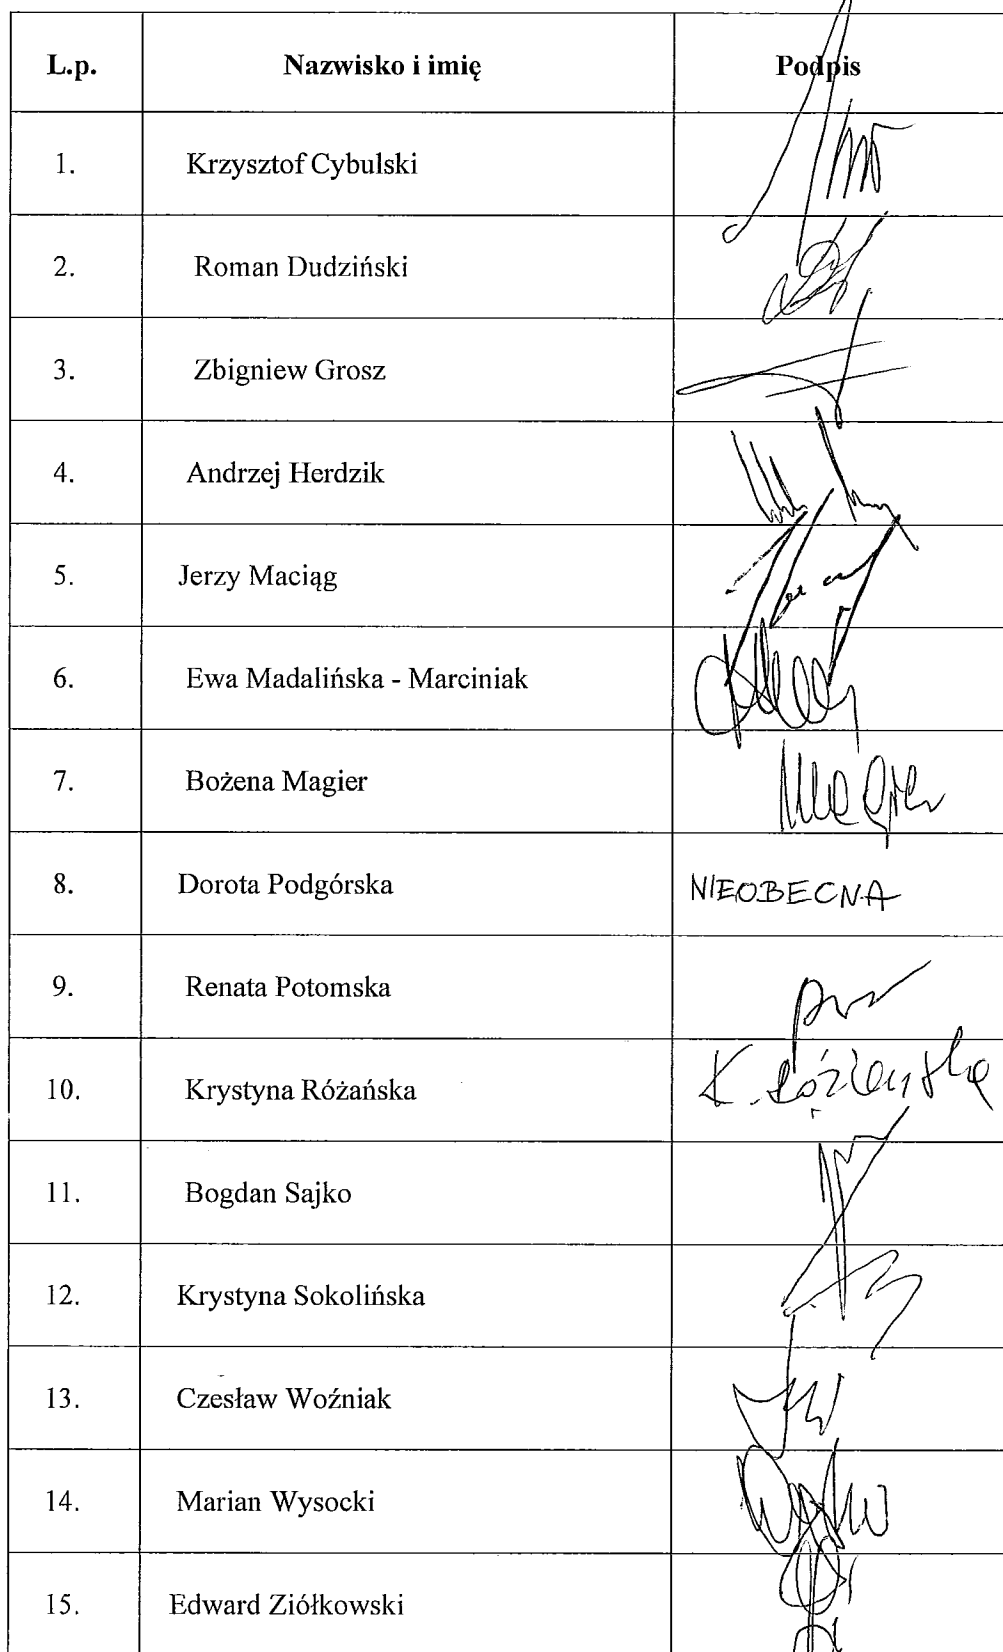 L.p. Nazwisko i imię Podpis
1. Krzysztof Cybulski
2. Roman Dudziński
3. Zbigniew Grosz
4. Andrzej Herdzik
5. Jerzy Maciąg
6. Ewa Madalińska - Marciniak
7. Bożena Magier Magier
8. Dorota Podgórska NIEOBECNA
9. Renata Potomska
10. Krystyna Różańska K. Różańska
11. Bogdan Sajko
12. Krystyna Sokolińska
13. Czesław Woźniak
14. Marian Wysocki
15. Edward Ziółkowski